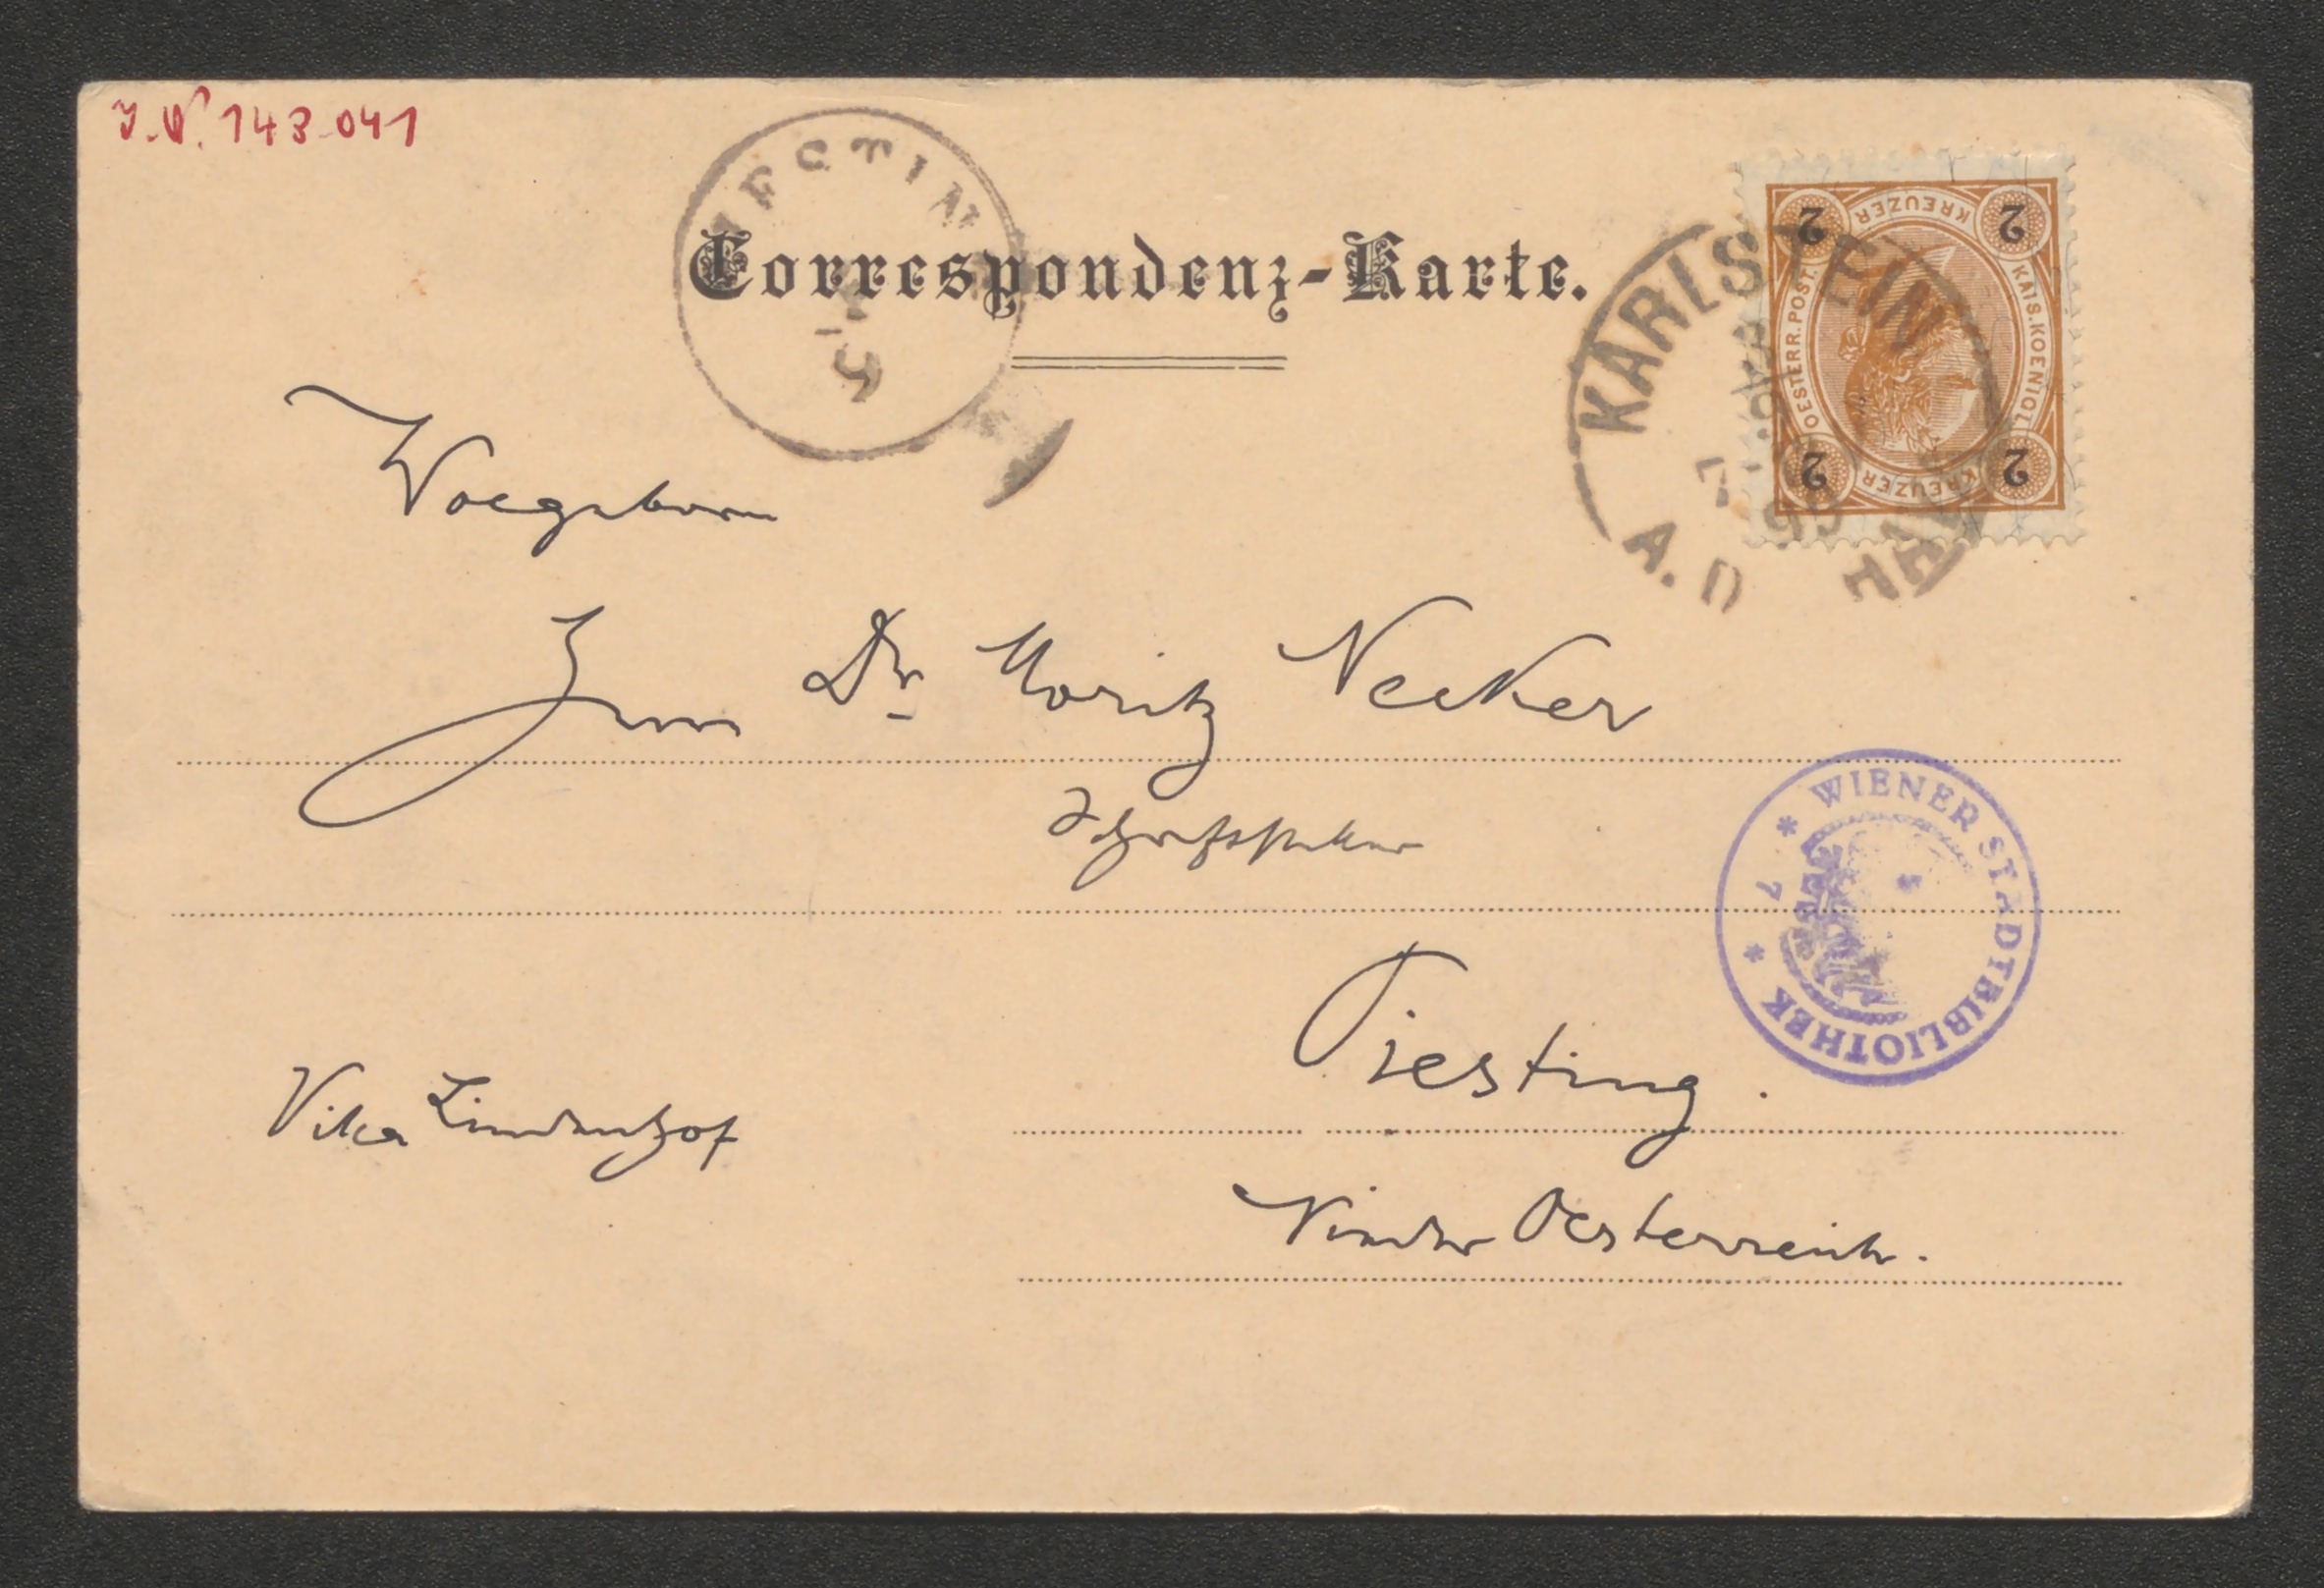 J.N. 143.041
Correspondenz-Karte.
KARLSTEIN
A. D.
2 KREUZER 2
OESTERR. POST. KAIS. KOENIGL.
2 KREUZER 2
Dr Moritz Necker
Schriftsteller
WIENER STADTBIBLIOTHEK
* 7 *
Piesting.
Villa Lindenhof
Nieder Oesterreich.